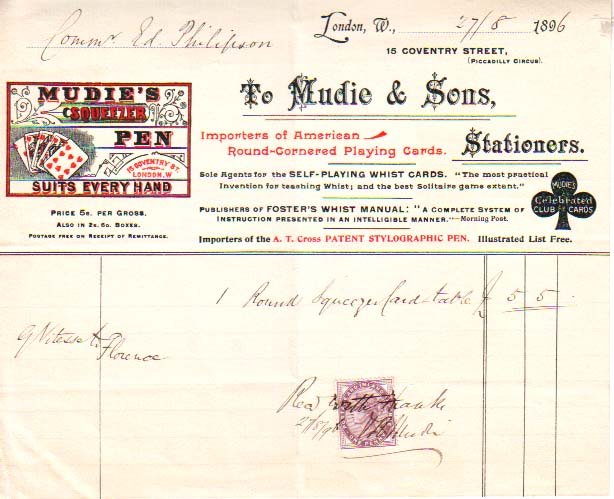 Commr. Ed. Philipson
London, W., 27/8 1896
15 COVENTRY STREET,
(PICCADILLY CIRCUS).
MUDIE'S
SQUEEZER
PEN
15 COVENTRY ST.
LONDON. W
SUITS EVERY HAND
PRICE 5s. PER GROSS.
ALSO IN 2s. 6d. BOXES.
POSTAGE FREE ON RECEIPT OF REMITTANCE.
To Mudie & Sons,
Importers of American
Round-Cornered Playing Cards.
Stationers.
Sole Agents for the SELF-PLAYING WHIST CARDS. "The most practical
Invention for teaching Whist; and the best Solitaire game extent."
PUBLISHERS OF FOSTER'S WHIST MANUAL: "A COMPLETE SYSTEM OF
INSTRUCTION PRESENTED IN AN INTELLIGIBLE MANNER."—Morning Post.
MUDIE'S
Celebrated
CLUB CARDS
Importers of the A. T. Cross PATENT STYLOGRAPHIC PEN. Illustrated List Free.
1 Round Squeezer Card-table £ 5 5
Florence
Recd with thanks
27/8/96